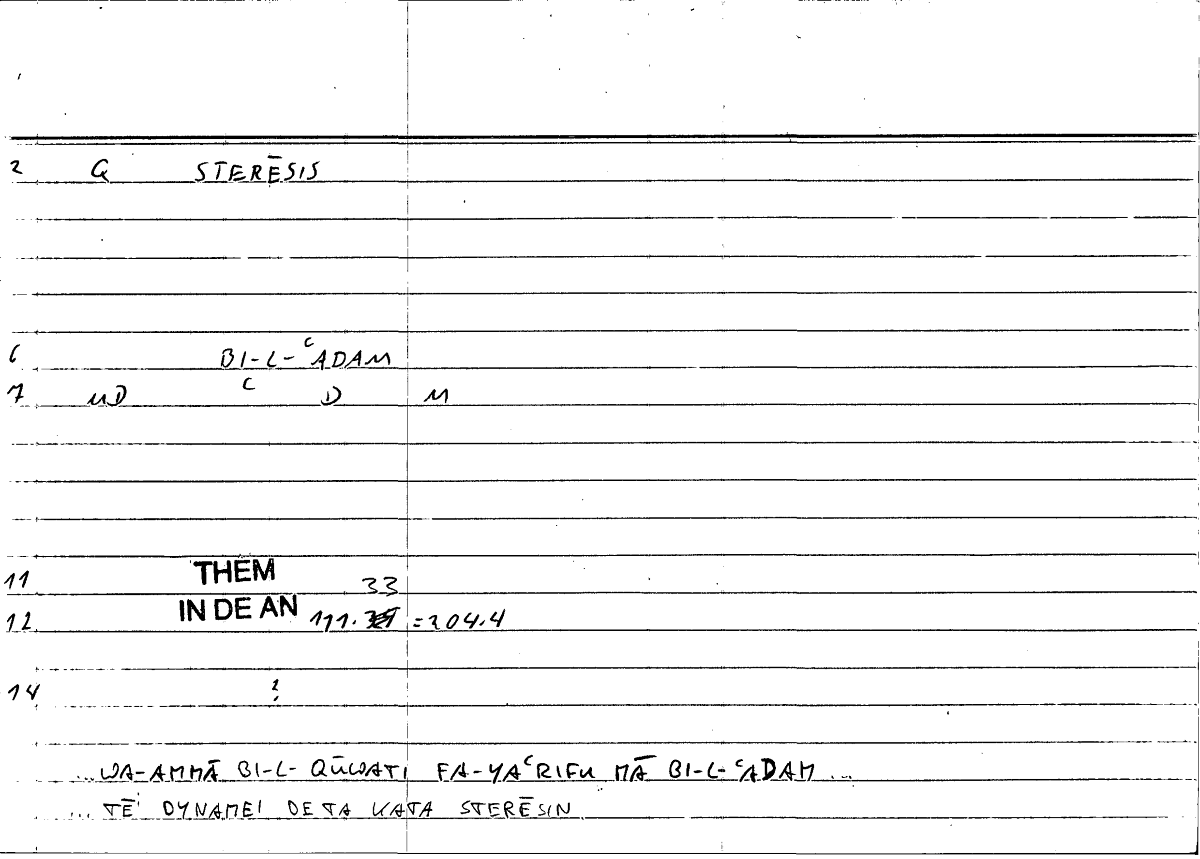 2 G STERĒSIS
6 BI-L-ᶜADAM
7 MD ᶜ D M
11 THEM 33
12 IN DE AN 111. =204.4
14 ?
...WA-AMMĀ BI-L-QŪWATI FA-YAᶜRIFU MĀ BI-L-ᶜADAM...
... TĒ DYNAMEI DE TA KATA STERĒSIN